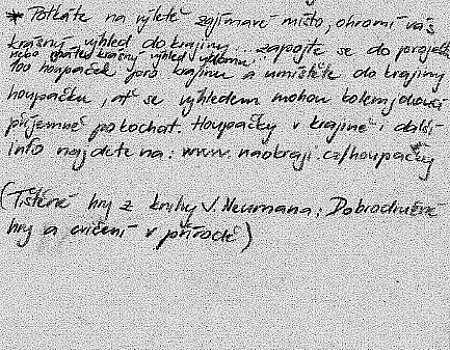 * Potkáte na výletě zajímavé místo, ohromí vás
krásný výhled do krajiny... zapojte se do projektu
nebo krásný výhled
100 houpaček pro krajinu a umístěte do krajiny
houpačku, ať se výhledem mohou kolemjdoucí
příjemně pokochat. Houpačky v krajině i další
info najdete na: www.naokraji.cz/houpacky
(Tištěné hry z knihy J. Neumana: Dobrodružné
hry a cvičení v přírodě)